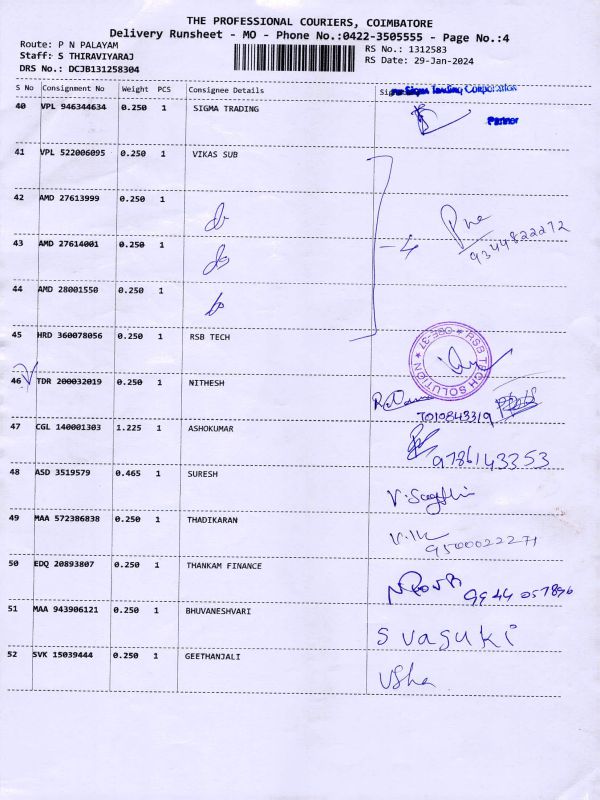 THE PROFESSIONAL COURIERS, COIMBATORE
Delivery Runsheet - MO - Phone No.:0422-3505555 - Page No.:4
Route: P N PALAYAM
RS No.: 1312583
Staff: S THIRAVIYARAJ
RS Date: 29-Jan-2024
DRS No.: DCJB131258304
S No Consignment No Weight PCS Consignee Details
40 VPL 946344634 0.250 1 SIGMA TRADING
For Sigma Trading Corporation
Partner
41 VPL 522006095 0.250 1 VIKAS SUB
42 AMD 27613999 0.250 1
43 AMD 27614001 0.250 1 -4
9344822272
44 AMD 28001550 0.250 1
45 HRD 360078056 0.250 1 RSB TECH
RSB TECH SOLUTION
46 TDR 200032019 0.250 1 NITHESH
47 CGL 140001303 1.225 1 ASHOKUMAR 9786143353
48 ASD 3519579 0.465 1 SURESH
49 MAA 572386838 0.250 1 THADIKARAN
9500022271
50 EDQ 20893807 0.250 1 THANKAM FINANCE
9944 057896
51 MAA 943906121 0.250 1 BHUVANESHVARI
S vasuki
52 SVK 15039444 0.250 1 GEETHANJALI
Usha